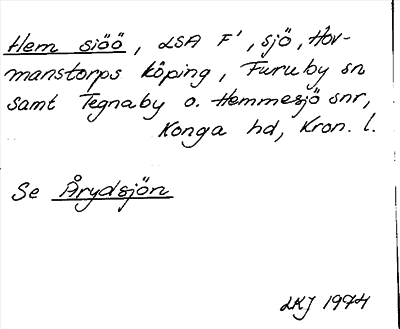 Hem siöö, LSA F', sjö, Hov-
manstorps köping, Furuby sn
samt Tegnaby o. Hemmesjö snr,
Konga hd, Kron. l.
Se Årydsjön
LKJ 1974